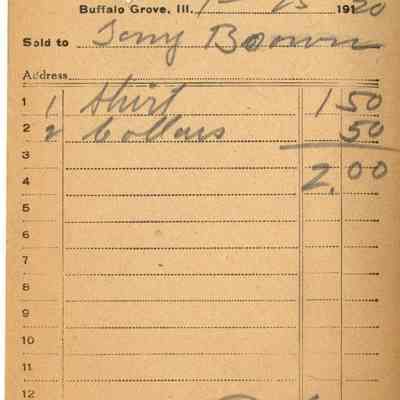 Buffalo Grove, Ill. 191 20
Sold to Tony Brown
Address
1 1 Shirt 1 50
2 2 Collars 50
3
4 2.00
5
6
7
8
9
10
11
12